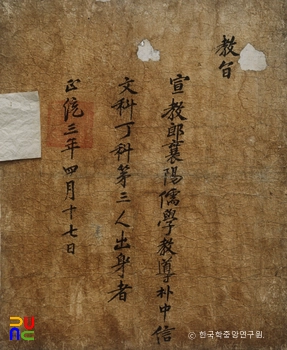 教旨
宣教郎襄陽儒學教導朴中信
文科丁科第三人出身者
正統三年四月十七日
© 한국학중앙연구원.